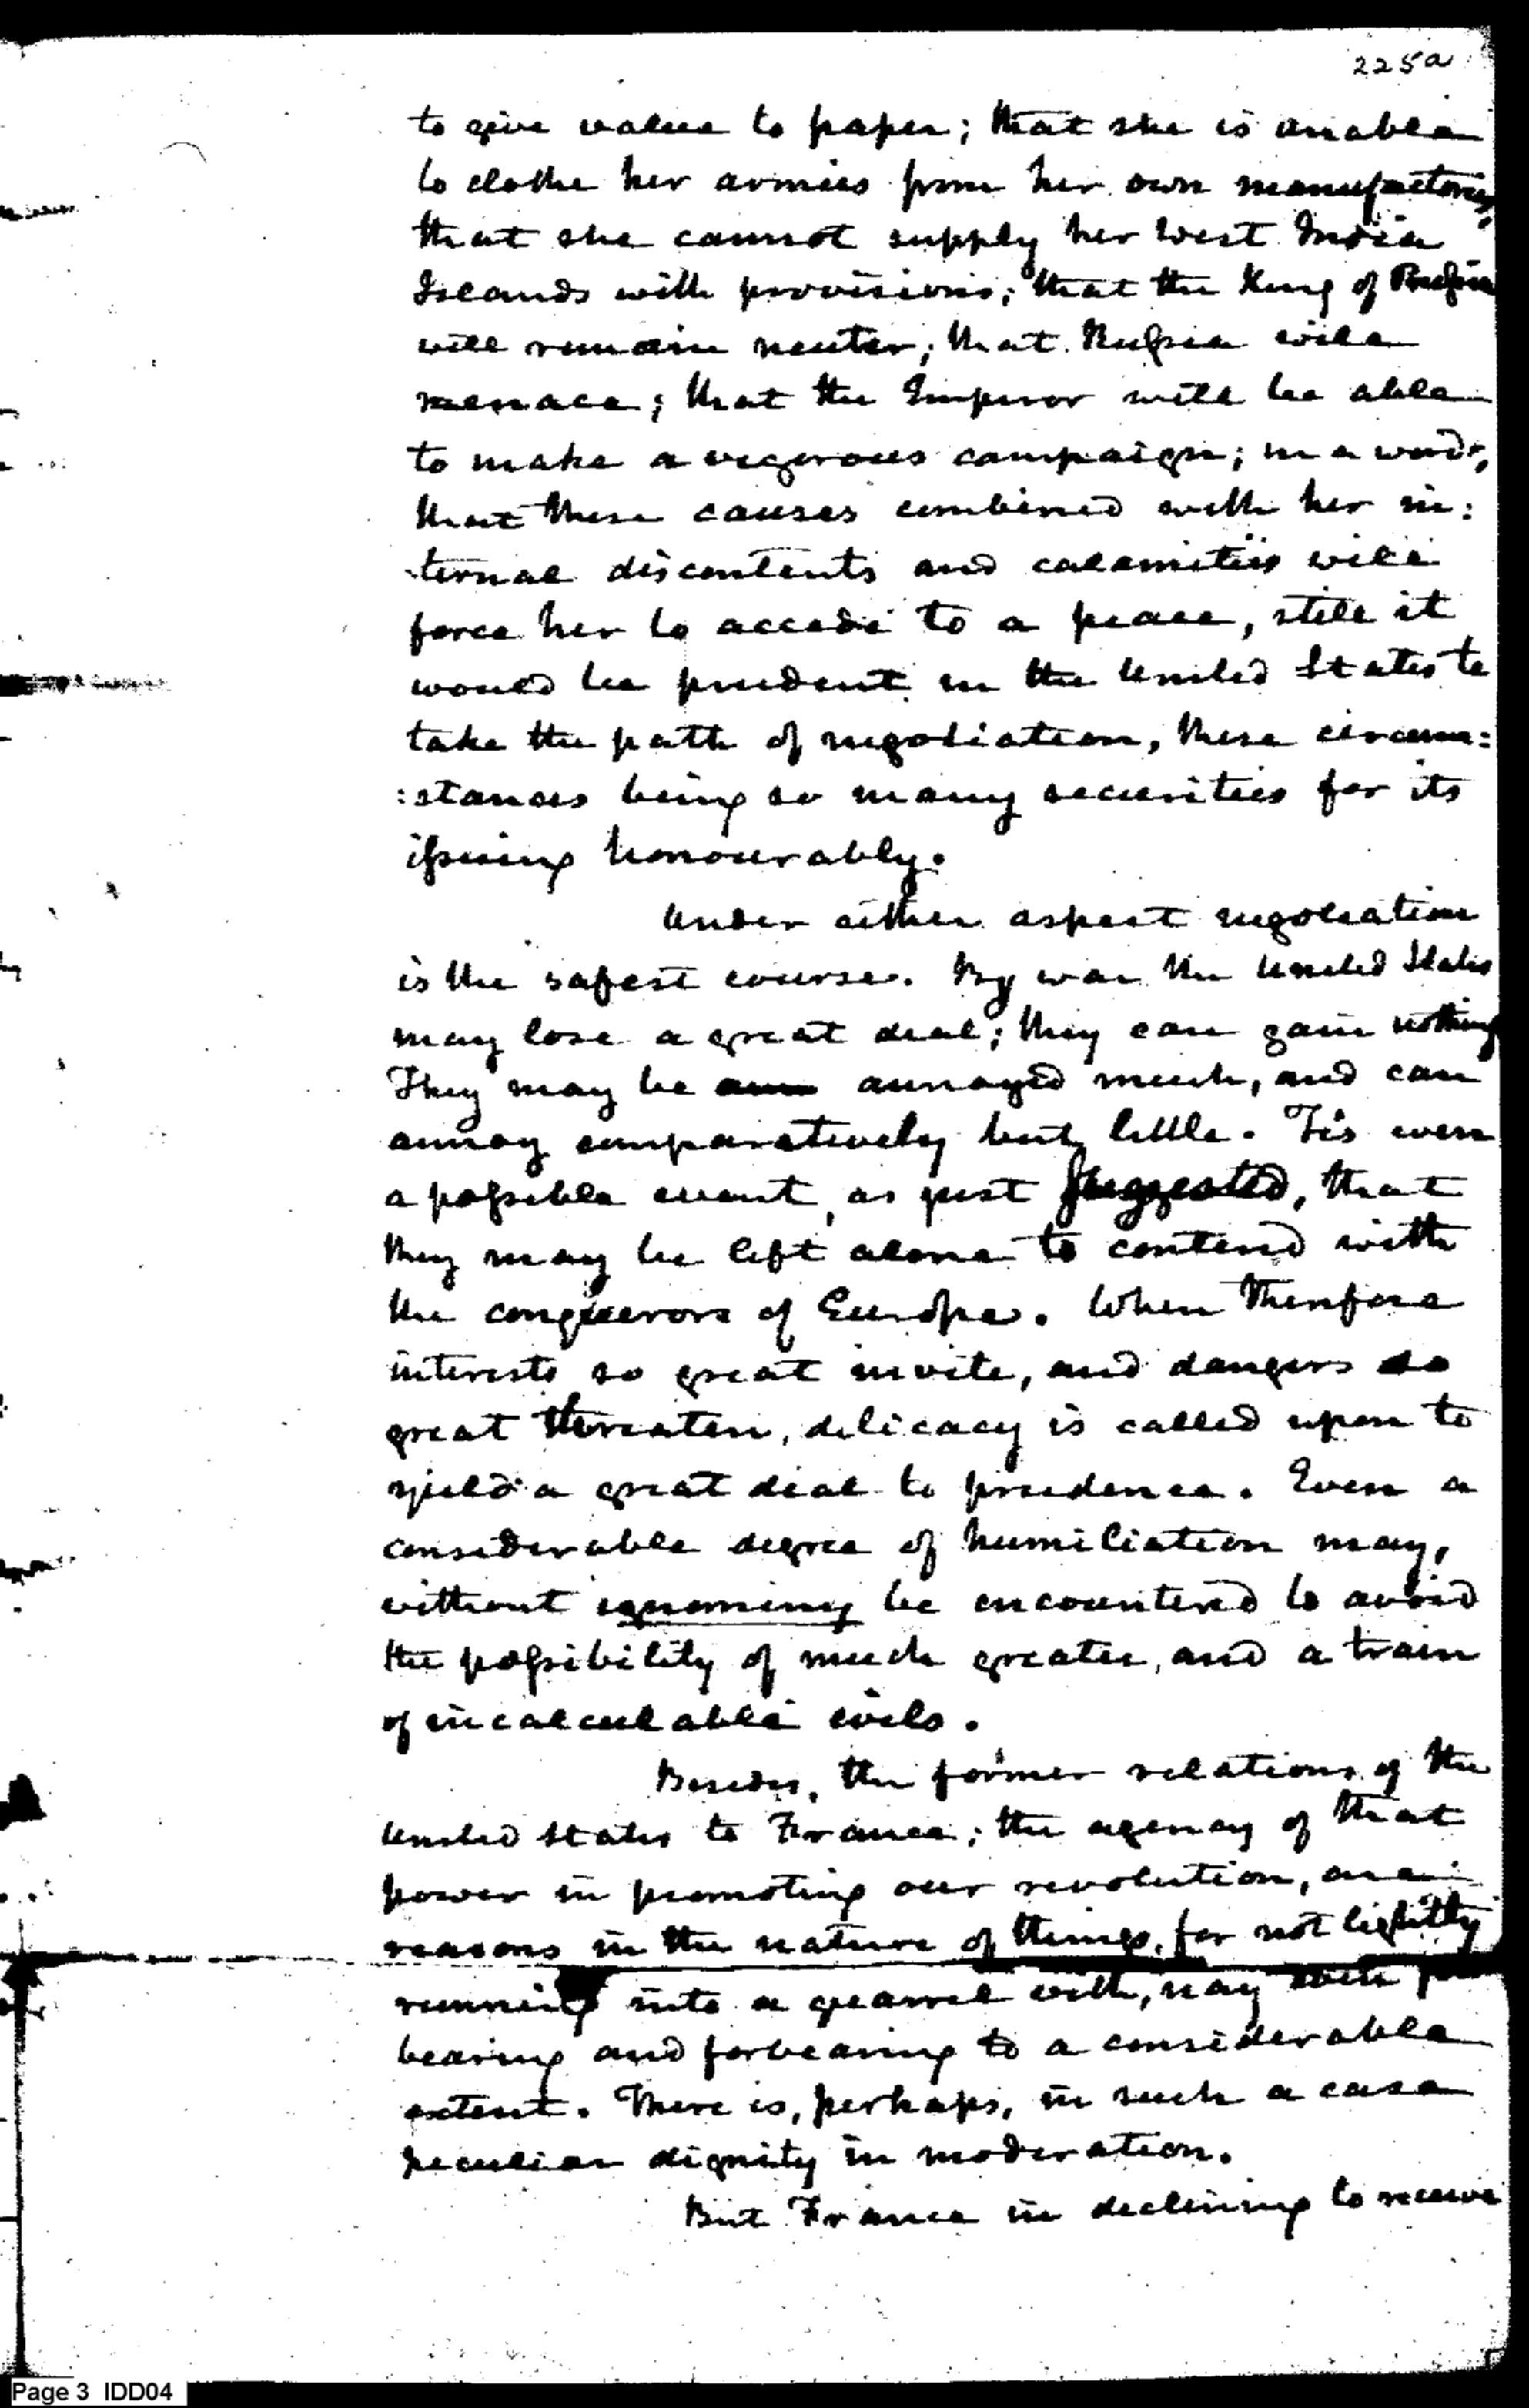 225a
to give value to paper; that she is unable
to clothe her armies from her own manufactories,
that she cannot supply her West India
Islands with provisions; that the King of Prussia
will remain neuter; that Russia will
menace; that the Emperor will be able
to make a vigorous campaign; in a word,
that these causes combined with her in:
-ternal discontents and calamities will
force her to accede to a peace, still it
would be prudent in the United States to
take the path of negotiation, these circum:
:stances being so many securities for its
issuing honourably.
Under either aspect negotiation
is the safest course. By war the United States
may lose a great deal; they can gain nothing
They may be annoyed much, and can
annoy comparatively but little. Tis even
a possible event, as just suggested, that
they may be left alone to contend with
the conquerors of Europe. When therefore
interests so great invite, and dangers so
great threaten, delicacy is called upon to
yield a great deal to prudence. Even a
considerable degree of humiliation may,
without ignominy be encountered to avoid
the possibility of much greater, and a train
of incalculable evils.
Besides, the former relations of the
United States to France; the agency of that
power in promoting our revolution, are
reasons in the nature of things, for not lightly
running into a quarrel with, nay even for
bearing and forbearing to a considerable
extent. There is, perhaps, in such a case
peculiar dignity in moderation.
But France in declining to receive
Page 3 IDD04